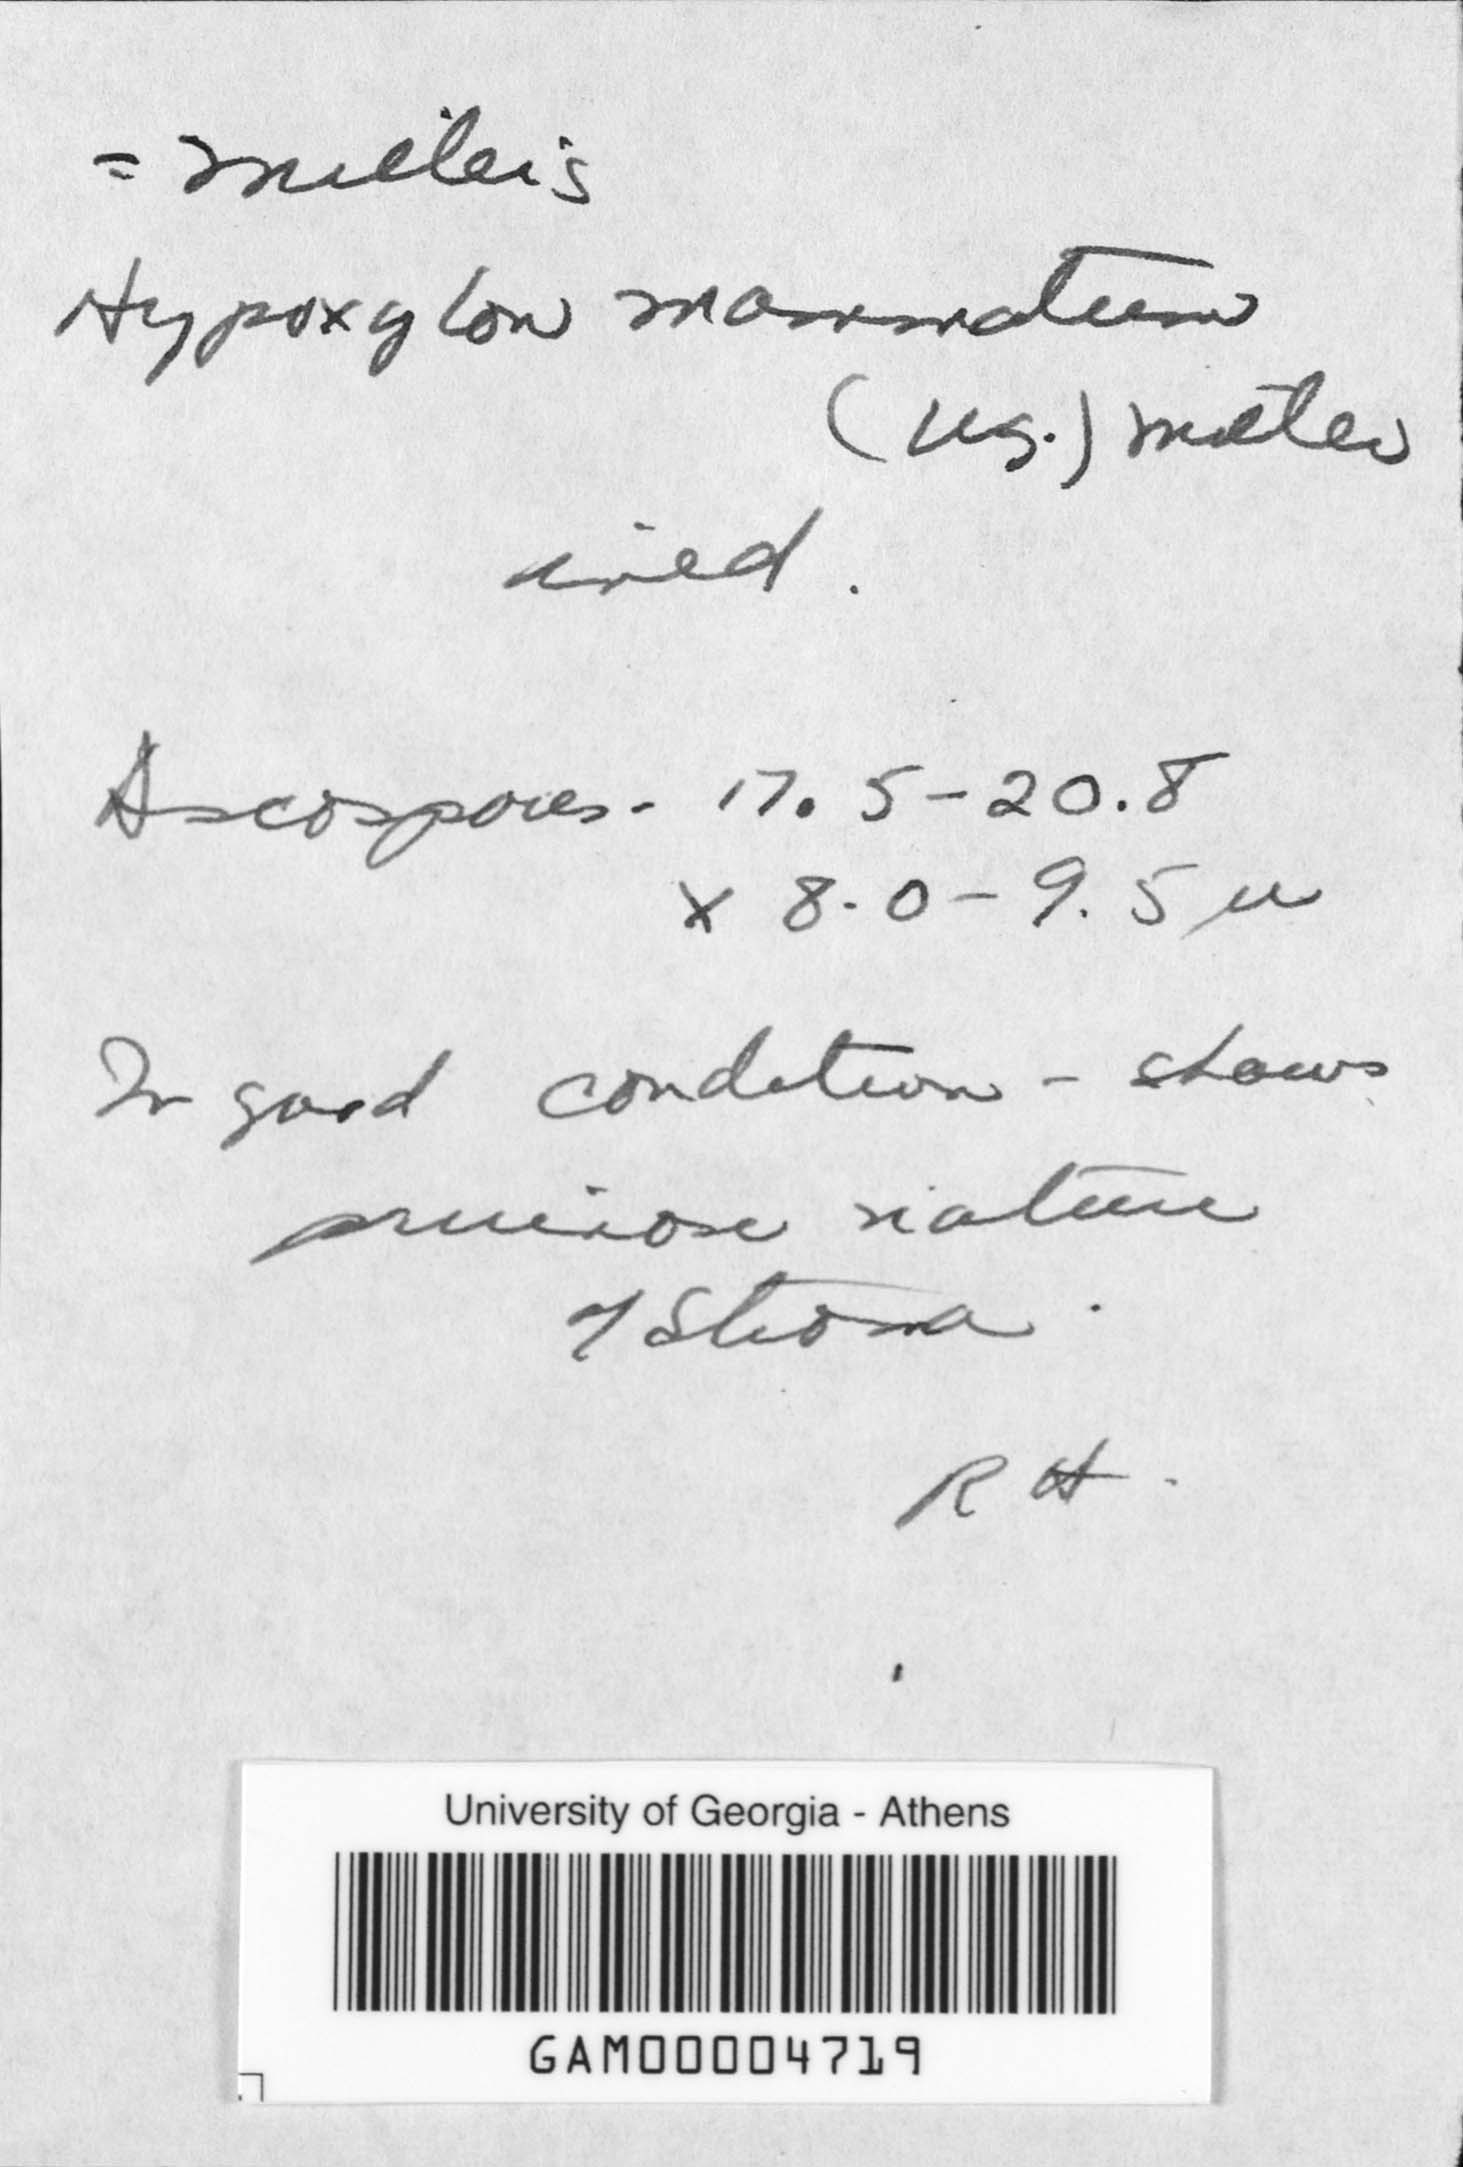 =
Hypoxylon mammatum
(Wg.) Miller
ined.
Ascospores - 17.5-20.8
x 8.0-9.5 µ
In good condition - shows
pruinose nature
of Stroma.
RH.
University of Georgia - Athens
GAM00004719